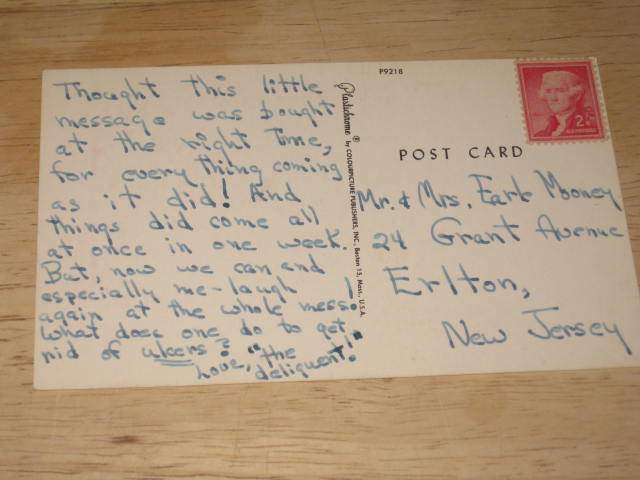 Thought this little
message was bought
at the right time,
for every thing coming
as it did! And
things did come all
at once in one week.
But, now we can, and
especially me - laugh
again at the whole mess!
What does one do to get
rid of ulcers?
Love, "the
deliquent"!
Plastichrome ® by COLOURPICTURE PUBLISHERS, INC., Boston 15, Mass., U.S.A.
P9218
2¢
U.S. POSTAGE
POST CARD
Mr. & Mrs. Earle Mooney
24 Grant Avenue
Erlton,
New Jersey